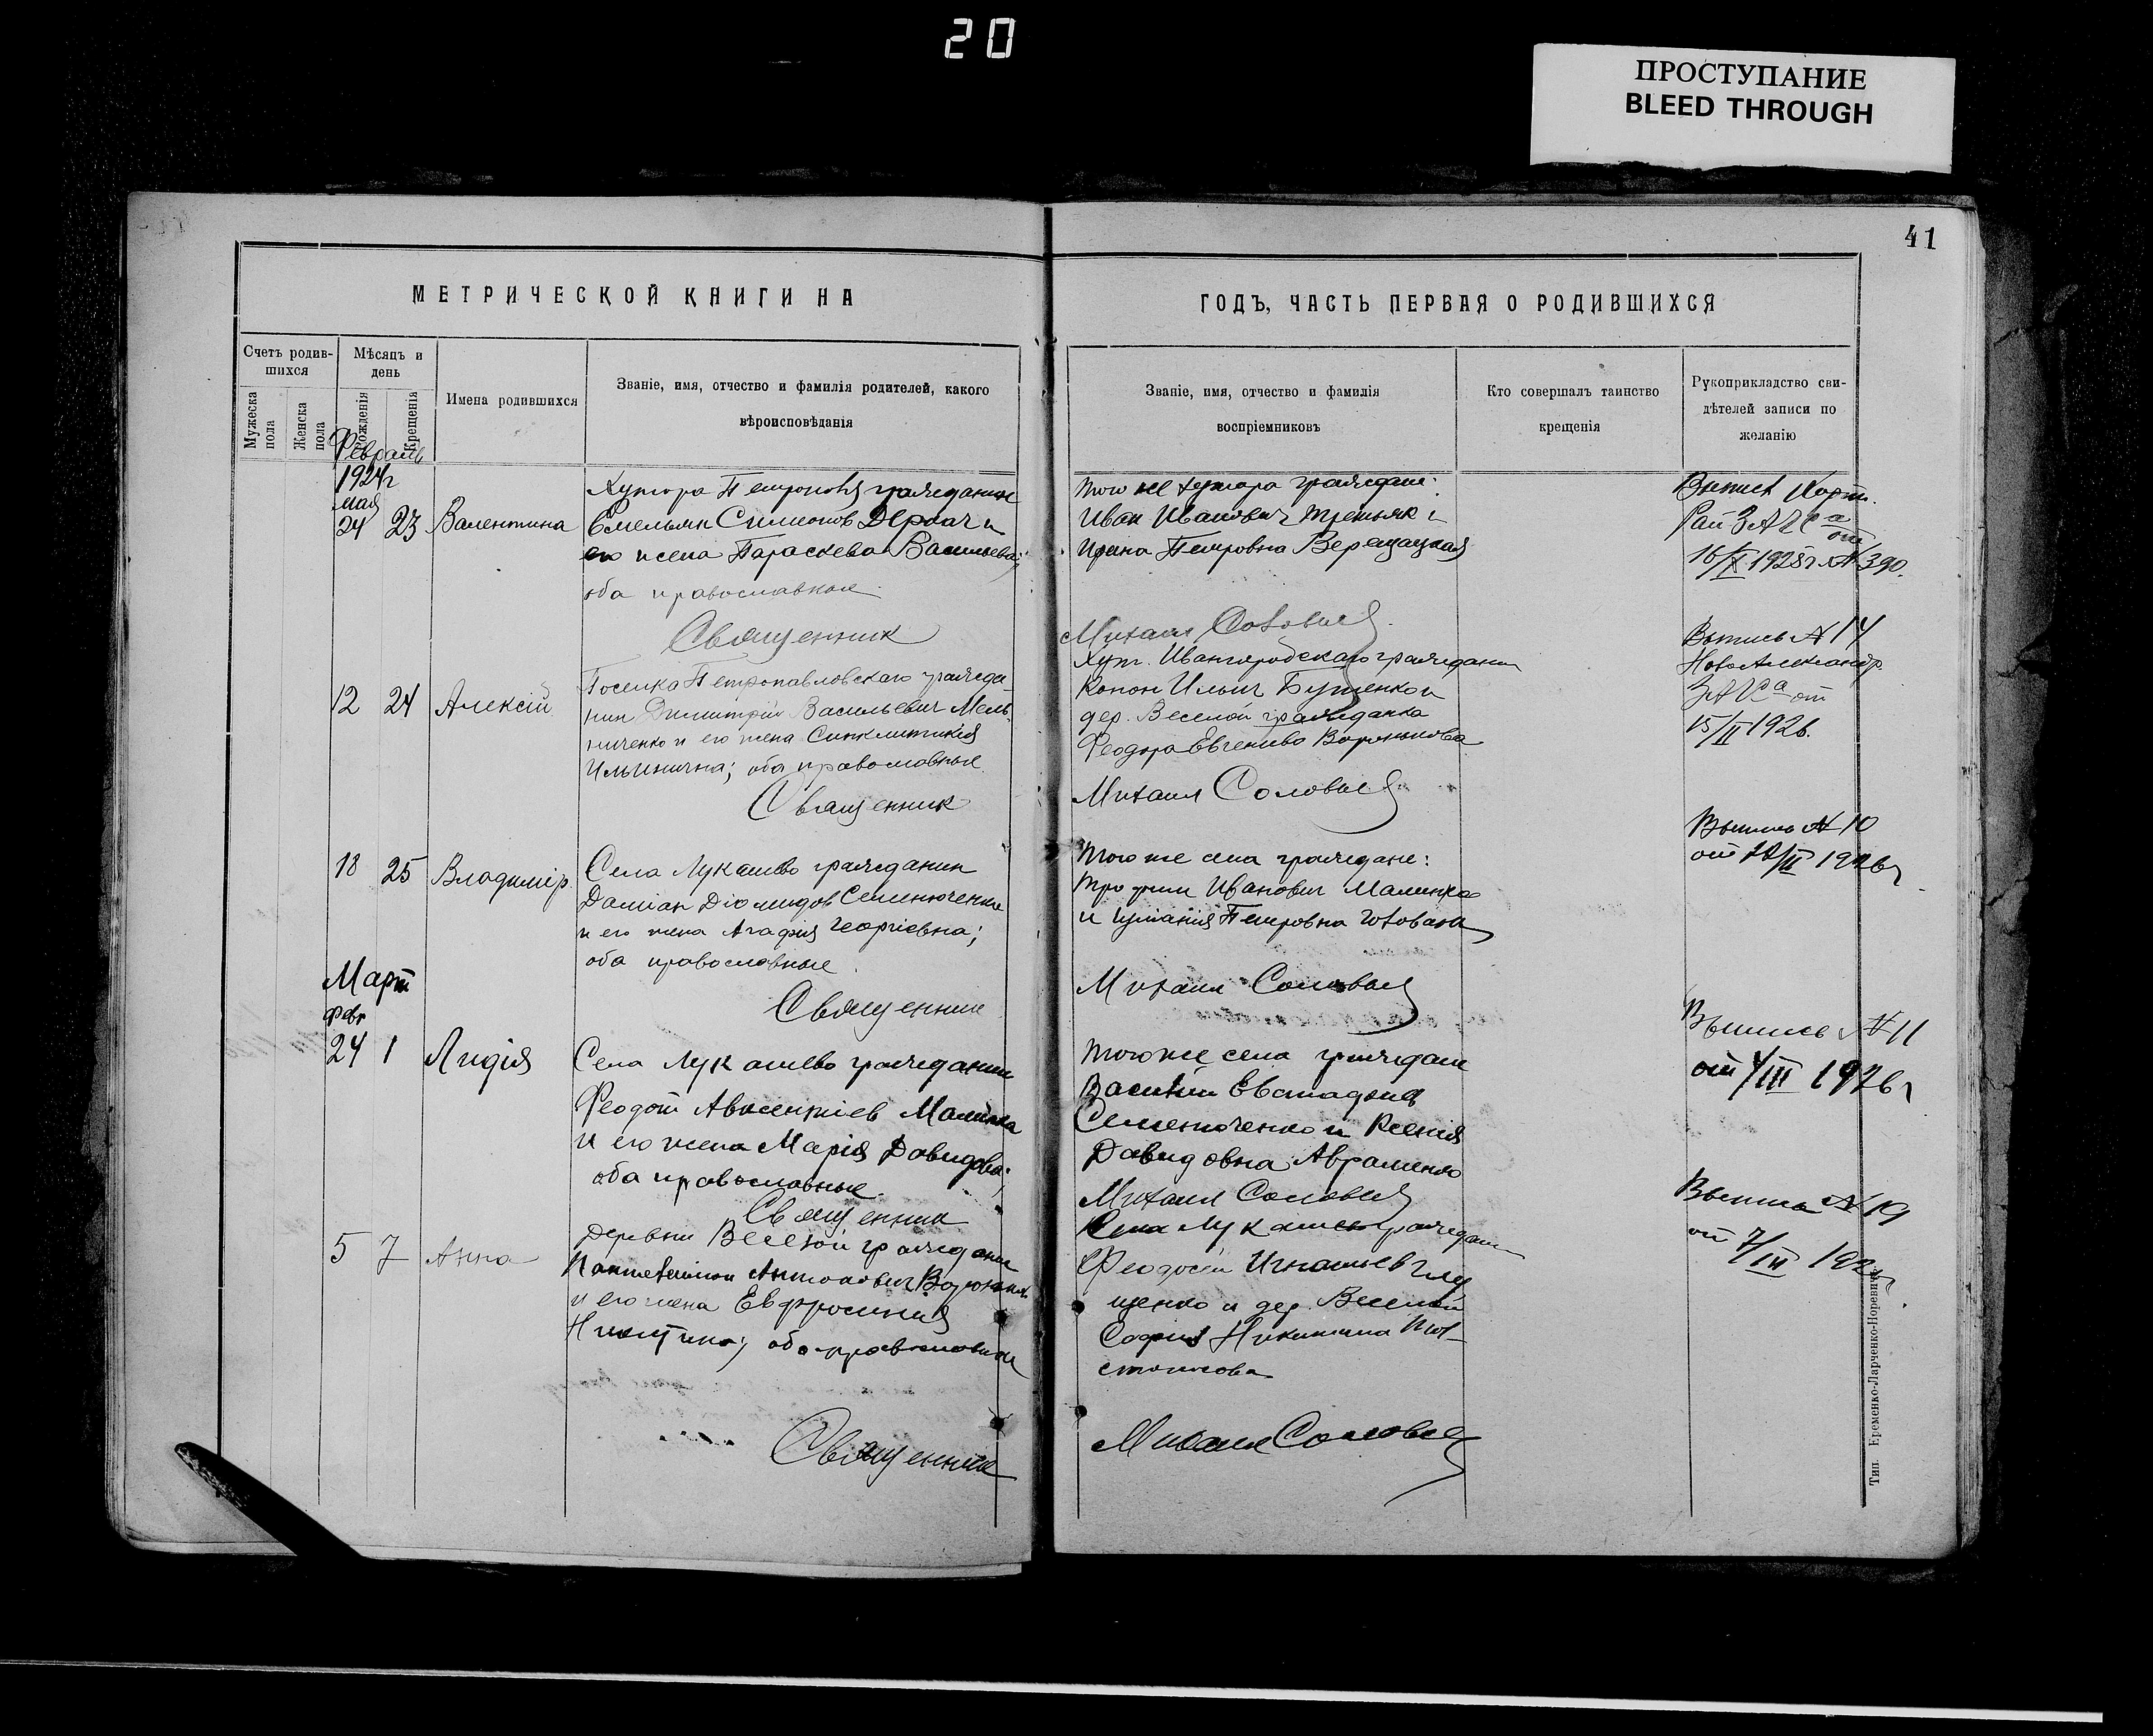 20
ПРОСТУПАНИЕ
BLEED THROUGH
41
МЕТРИЧЕСКОЙ КНИГИ НА
ГОДЪ, ЧАСТЬ ПЕРВАЯ О РОДИВШИХСЯ
Счетъ родив-
шихся
Мужеска
пола
Женска
пола
Мѣсяцъ и
день
Рожденія
Крещенія
Имена родившихся
Званіе, имя, отчество и фамилія родителей, какого
вѣроисповѣданія
Званіе, имя, отчество и фамилія
воспріемниковъ
Кто совершалъ таинство
крещенія
Рукоприкладство сви-
дѣтелей записи по
желанію
Февраль
1924г
мая
24 23 Валентина
Хутора гражданин
Емельян Симонов Деркач и
его жена Параскева Васильева;
оба православные
Священник
того же хутора граждане:
Иван Иванович Третьяк и
Ирина Петровна
Михаил Соловьев
Выпись
Рай ЗАГСа от
16/X 1925г № 390.
12 24 Алексій
Поселка Петропавловскаго гражда-
нин Димитрій Васильевич Мель-
ниченко и его жена Синклитикія
Ильинична; оба православные
Священник
Хут. Ивангородскаго гражданин
Конон Ильич Бутенко и
дер. Веселой гражданка
Феодора Евгеньева Воронькова
Михаил Соловьев
Выпись № 14
НовоАлександр.
ЗАГСа от
15/II 1926.
18 25 Владимір
Села Лукашево гражданин
Даміан Діомидов Семенюченко
и его жена Агафія Георгіевна;
оба православные
Священник
того же села граждане:
Трофим Иванович Малинка
и Іуліанія Петровна
Михаил Соловьев
Выпись № 10
от /II 1926г
Март
фев
24 1 Лидія
Села Лукашево гражданин
Феодот Авксентіев Малинка
и его жена Марія Давидова;
оба православные
Священник
того же села граждане
Василій Евстафіев
Семенюченко и Ксенія
Давидовна Авраменко
Михаил Соловьев
Выпись № 11
от /III 1926г
5 7 Анна
Деревни Веселой гражданин
Пантелеймон Антонович
и его жена Евфросинія
Никитина; оба православные
Священник
Села Лукашево гражданин
Феодосій Игнатьев Глу
щенко и дер. Веселой
Софія Никитина Тол-
стоносова
Михаил Соловьев
Выпись № 19
от 7/III 192
Тип. Еременко-Ларченко-Норевичъ